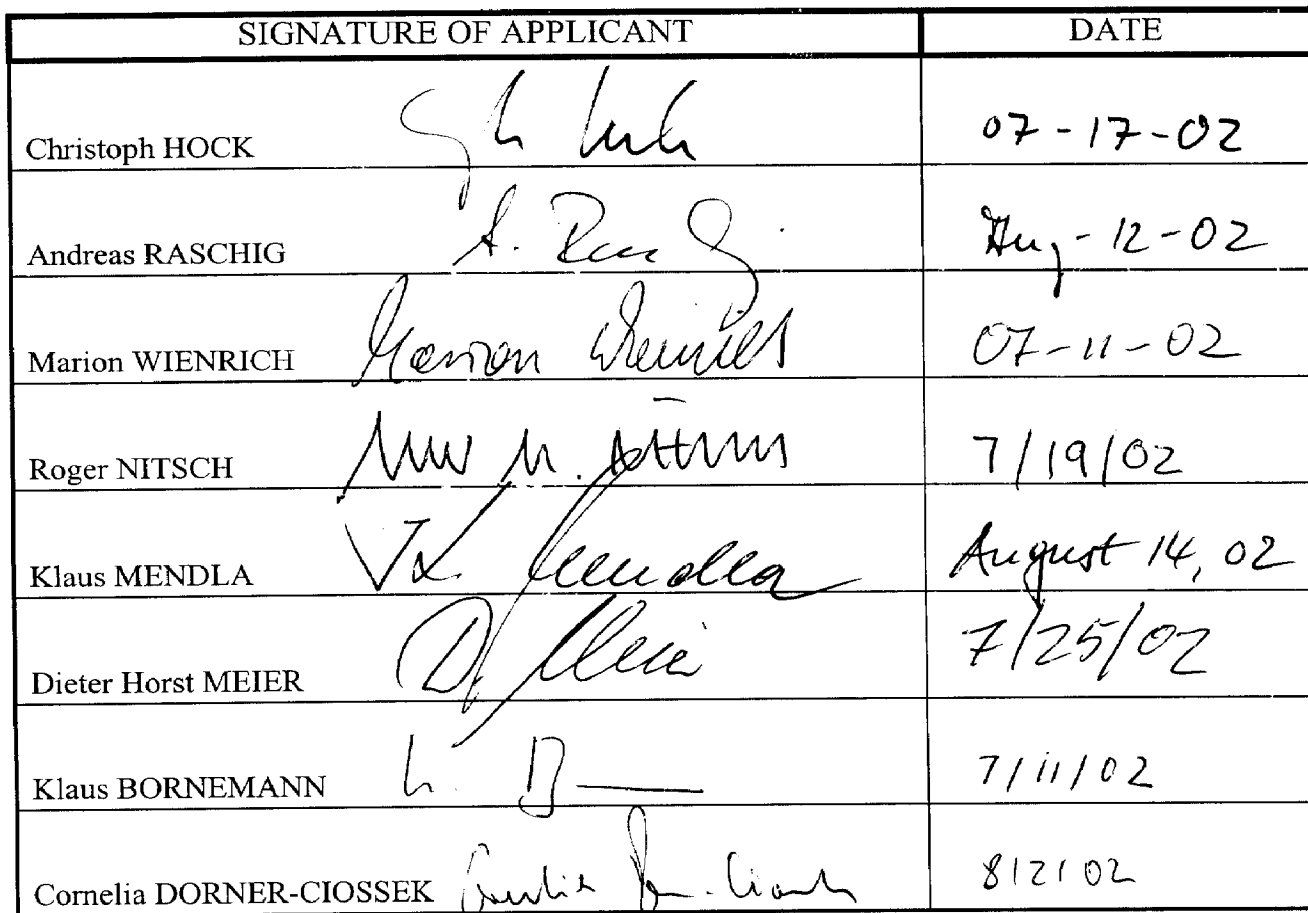 SIGNATURE OF APPLICANT DATE
Christoph HOCK 07-17-02
Andreas RASCHIG A. Aug-12-02
Marion WIENRICH Marion Wienrich 07-11-02
Roger NITSCH 7/19/02
Klaus MENDLA K. Mendla August 14, 02
Dieter Horst MEIER D. Meier 7/25/02
Klaus BORNEMANN K. B 7/11/02
Cornelia DORNER-CIOSSEK Cornelia 8/2/02